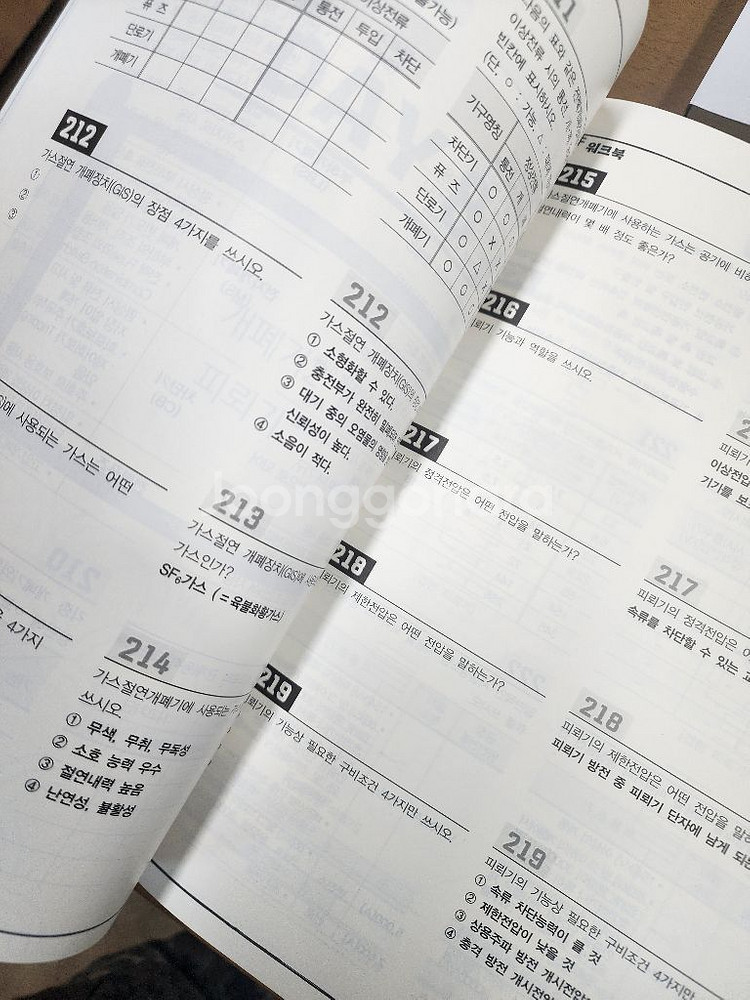 퓨 즈
단로기
개폐기
이상전류
통전 투입 차단
212
가스절연 개폐장치(GIS)의 장점 4가지를 쓰시오.
①
②
③
사용되는 가스는 어떤
4가지
이상전류 시의 통전
빈칸에 표시하시오
(단, ○ : 가능, △ :
기구명칭
통전
차단기 ○ ○
퓨 즈 ○ ×
단로기 ○ △
개폐기 ○ ○
212
가스절연 개폐장치(GIS)의
① 소형화할 수 있다.
② 충전부가 완전히 밀폐되어
③ 대기 중의 오염물의
신뢰성이 높다.
④ 소음이 적다.
213
가스절연 개폐장치(GIS)에
가스인가?
SF₆가스 (=육불화황가스)
214
가스절연개폐기에 사용되는
쓰시오.
① 무색, 무취, 무독성
② 소호 능력 우수
③ 절연내력 높음
④ 난연성, 불활성
워크북
215
가스절연개폐기에 사용하는 가스는 공기에 비해
절연내력이 몇 배 정도 좋은가?
216
피뢰기 기능과 역할을 쓰시오.
217
피뢰기의 정격전압은 어떤 전압을 말하는가?
218
피뢰기의 제한전압은 어떤 전압을 말하는가?
219
피뢰기의 기능상 필요한 구비조건 4가지만 쓰시오.
피뢰기
이상전압
기기를
217
피뢰기의 정격전압은
속류를 차단할 수 있는
218
피뢰기의 제한전압은 어떤 전압을
피뢰기 방전 중 피뢰기 단자에 남게
219
피뢰기의 기능상 필요한 구비조건 4가지만
① 속류 차단능력이 클 것
② 제한전압이 낮을 것
③ 상용주파 방전 개시전압
④ 충격 방전 개시전압